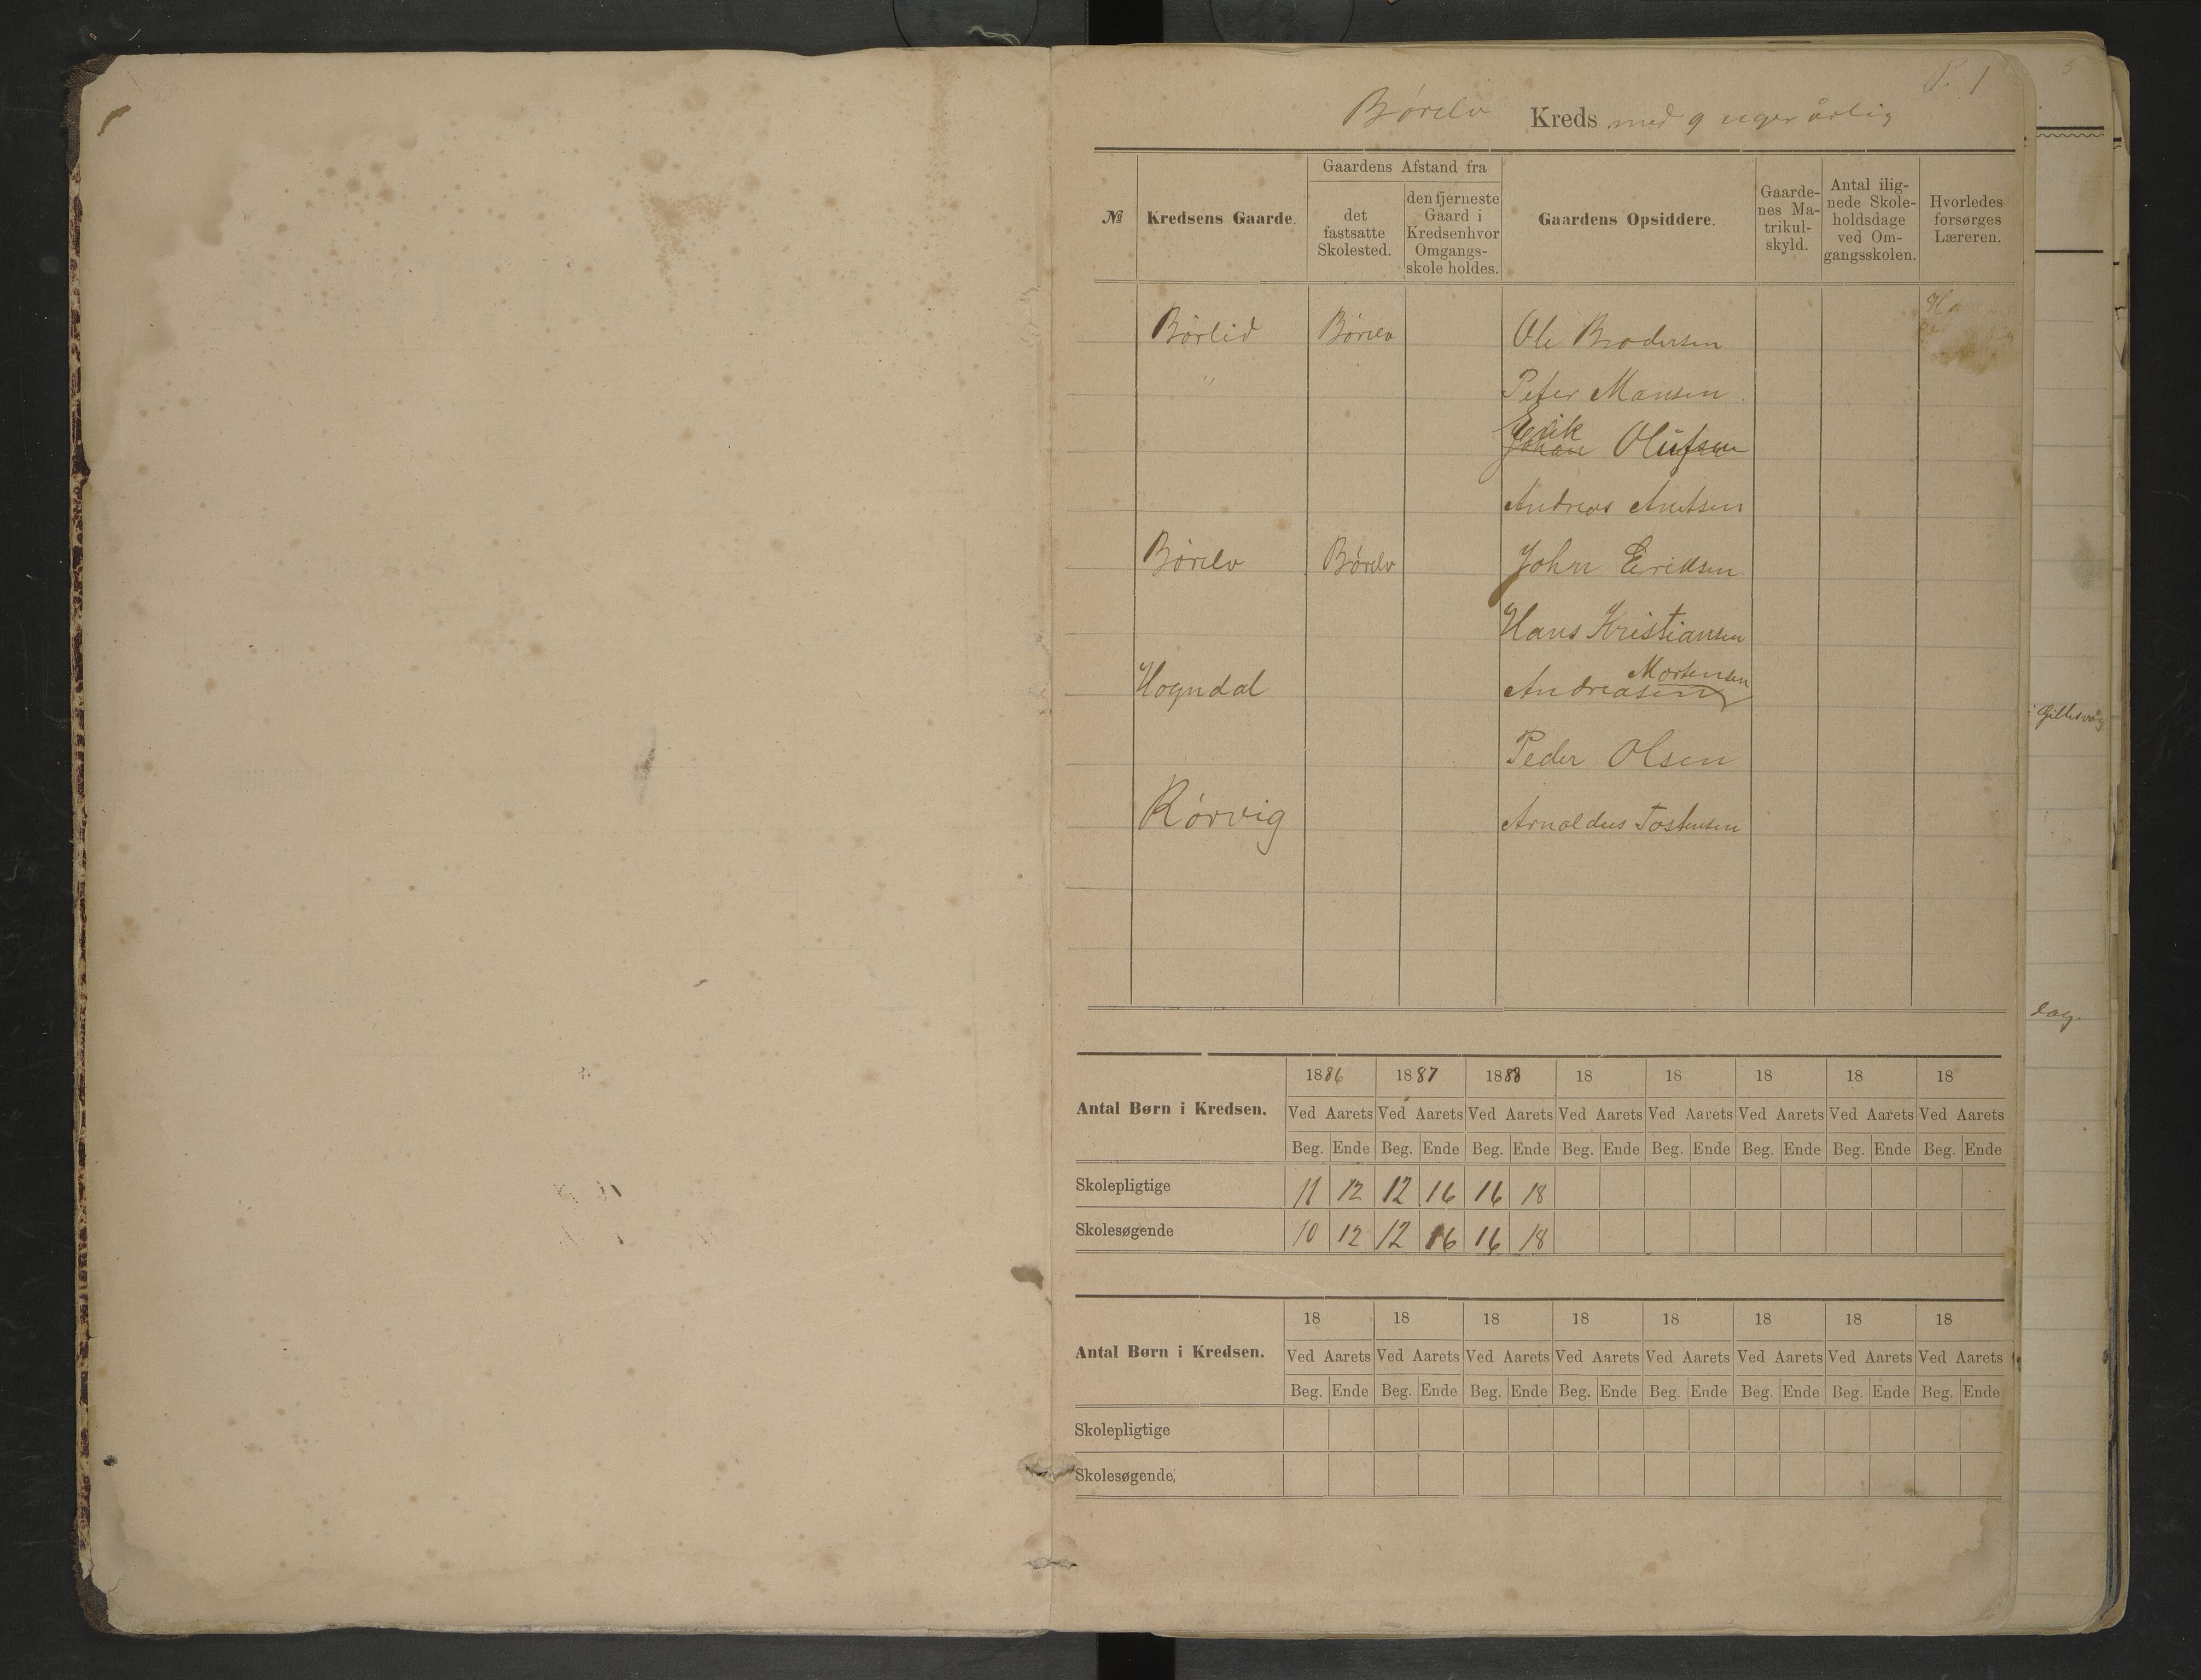 P. 1
Børelv Kreds med 9 uger årlig
№ Kredsens Gaarde. Gaardens Afstand fra det fastsatte Skolested. den fjerneste Gaard i Kredsen hvor Omgangs-skole holdes. Gaardens Opsiddere. Gaarde-nes Ma-trikul-skyld. Antal ilig-nede Skole-holdsdage ved Om-gangsskolen. Hvorledes forsørges Læreren.
Børlid Børelv Ole Brodersen
" Peter Mansen
Erik
Johan Olufsen
Andreas Antsen
Børelv Børelv John Eriksen
Hans Kristiansen
Mortensen
Hogndal Andreasen
Peder Olsen
Rørvig Arnoldus Tostensen
i Gillesvåg
dag.
Antal Børn i Kredsen. 1886 1887 1888 18 18 18 18 18
Ved Aarets Ved Aarets Ved Aarets Ved Aarets Ved Aarets Ved Aarets Ved Aarets Ved Aarets
Beg. Ende Beg. Ende Beg. Ende Beg. Ende Beg. Ende Beg. Ende Beg. Ende Beg. Ende
Skolepligtige 11 12 12 16 16 18
Skolesøgende 10 12 12 16 16 18
Antal Børn i Kredsen. 18 18 18 18 18 18 18 18
Ved Aarets Ved Aarets Ved Aarets Ved Aarets Ved Aarets Ved Aarets Ved Aarets Ved Aarets
Beg. Ende Beg. Ende Beg. Ende Beg. Ende Beg. Ende Beg. Ende Beg. Ende Beg. Ende
Skolepligtige
Skolesøgende,